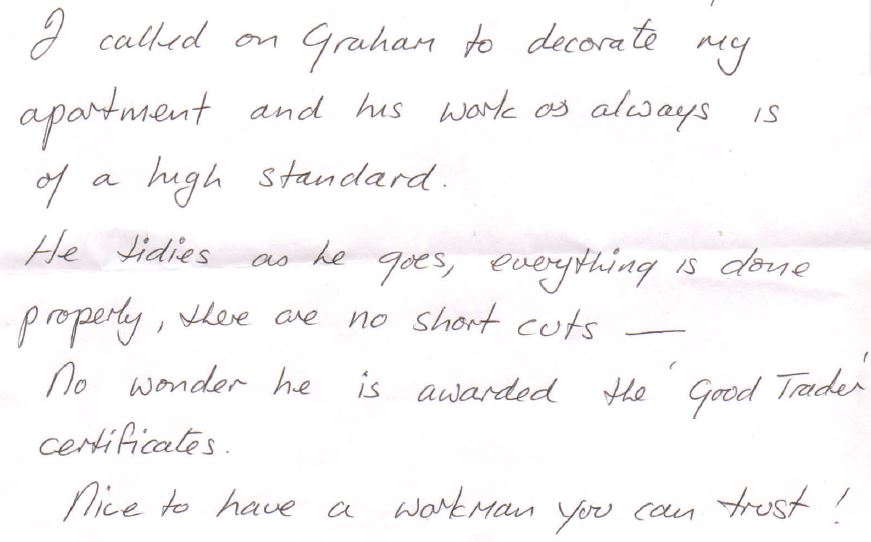 I called on Graham to decorate my
apartment and his work as always is
of a high standard.
He tidies as he goes, everything is done
properly, there are no short cuts —
No wonder he is awarded the 'Good Trader'
certificates.
Nice to have a workman you can trust!